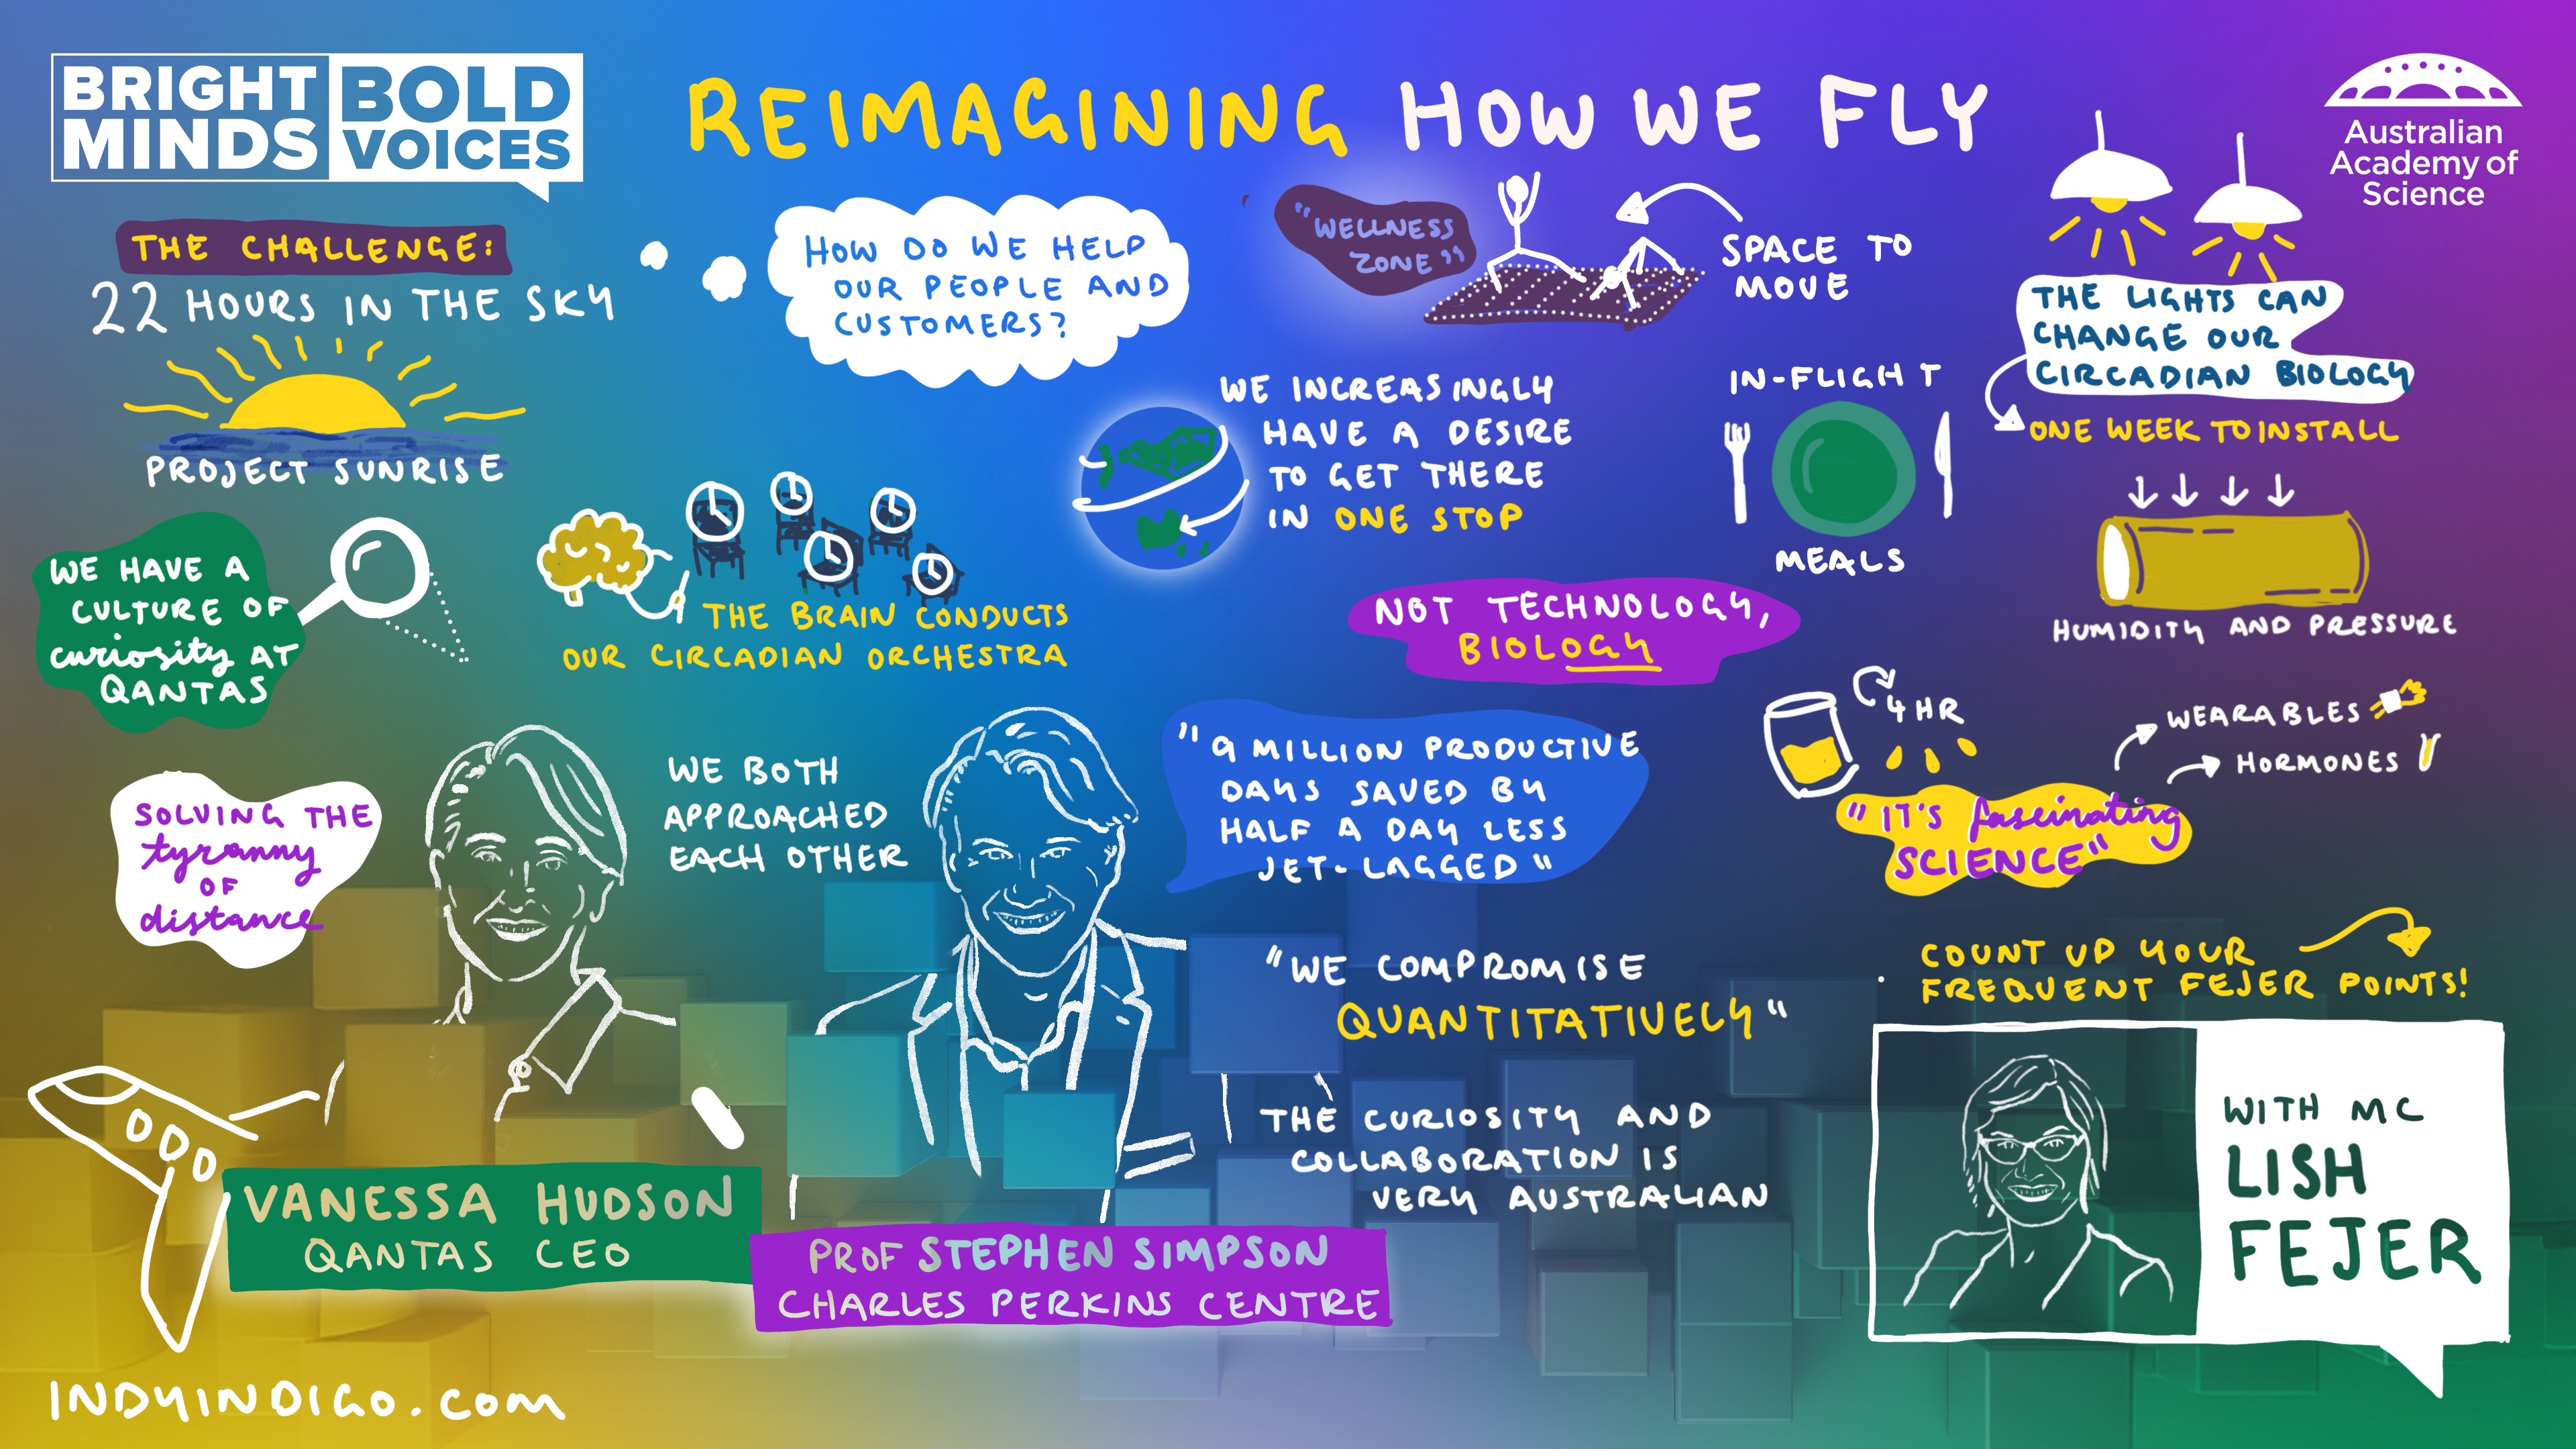 BRIGHT MINDS
BOLD VOICES
REIMAGINING HOW WE FLY
Australian
Academy of
Science
THE CHALLENGE:
22 HOURS IN THE SKY
PROJECT SUNRISE
HOW DO WE HELP
OUR PEOPLE AND
CUSTOMERS?
"WELLNESS
ZONE"
SPACE TO
MOVE
THE LIGHTS CAN
CHANGE OUR
CIRCADIAN BIOLOGY
ONE WEEK TO INSTALL
WE INCREASINGLY
HAVE A DESIRE
TO GET THERE
IN ONE STOP
IN-FLIGHT
MEALS
HUMIDITY AND PRESSURE
WE HAVE A
CULTURE OF
curiosity AT
QANTAS
THE BRAIN CONDUCTS
OUR CIRCADIAN ORCHESTRA
NOT TECHNOLOGY,
BIOLOGY
4 HR
WEARABLES
HORMONES
"IT'S fascinating
SCIENCE"
SOLVING THE
tyranny
OF
distance
WE BOTH
APPROACHED
EACH OTHER
"9 MILLION PRODUCTIVE
DAYS SAVED BY
HALF A DAY LESS
JET-LAGGED"
"WE COMPROMISE
QUANTITATIVELY"
THE CURIOSITY AND
COLLABORATION IS
VERY AUSTRALIAN
COUNT UP YOUR
FREQUENT FEJER POINTS!
VANESSA HUDSON
QANTAS CEO
PROF STEPHEN SIMPSON
CHARLES PERKINS CENTRE
WITH MC
LISH
FEJER
INDYINDIGO.com